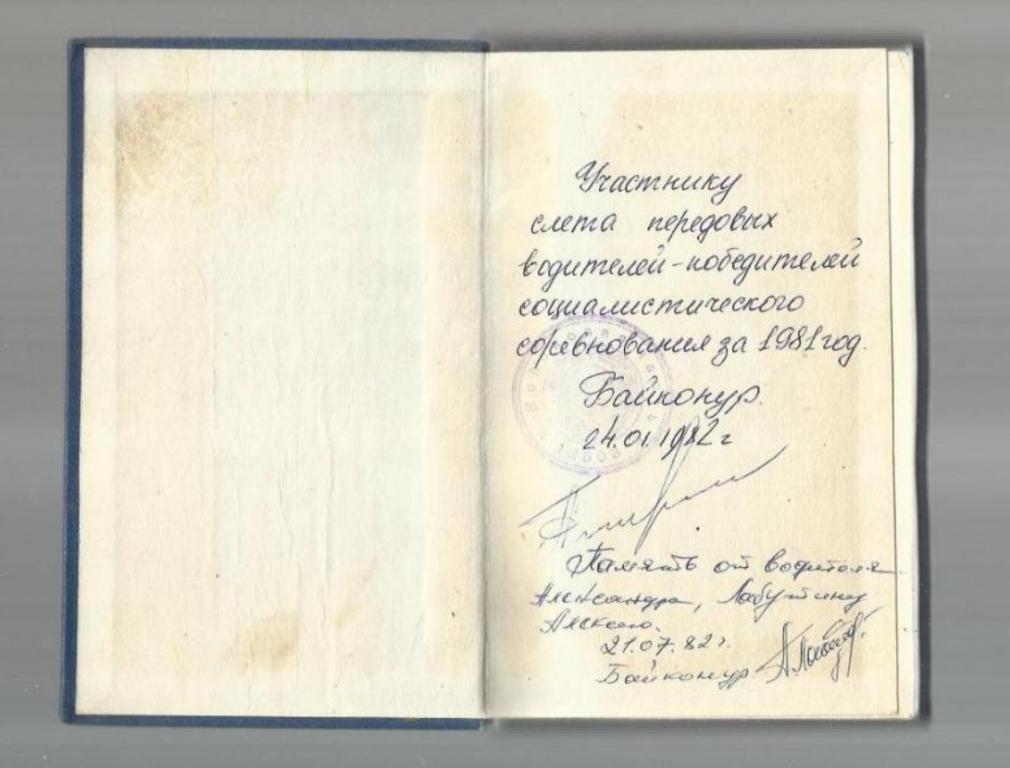 Участнику
слета передовых
водителей-победителей
социалистического
соревнования за 1981 год.
Байконур.
24.01.1982 г
Память от водителя
Александра, Лабутину
Алексею.
21.07.82 г.
Байконур